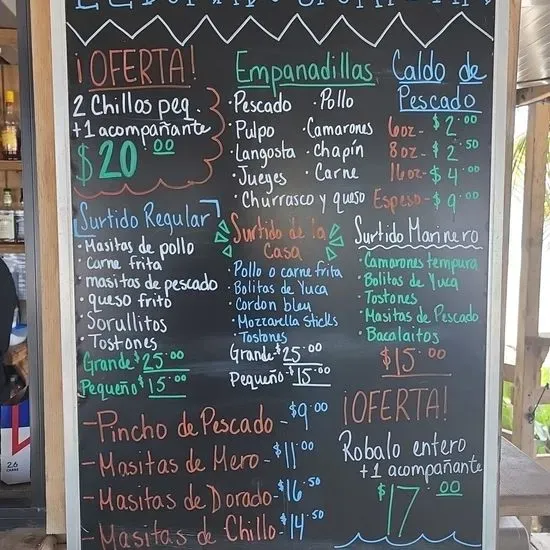 ¡OFERTA!
2 Chillos peq.
+1 acompañante
$20.00
Empanadillas
• Pescado • Pollo
• Pulpo • Camarones
• Langosta • Chapín
• Jueyes • Carne
• Churrasco y queso
Caldo de
Pescado
6oz - $2.00
8oz - $2.50
16oz - $4.00
Espeso - $9.00
Surtido Regular
• Masitas de pollo
• Carne frita
• masitas de pescado
• queso frito
• Sorullitos
• Tostones
Grande $25.00
Pequeño $15.00
Surtido de la
Casa
• Pollo o carne frita
• Bolitas de Yuca
• Cordon bleu
• Mozzarella Sticks
• Tostones
Grande $25.00
Pequeño $15.00
Surtido Marinero
• Camarones tempura
• Bolitas de Yuca
• Tostones
• Masitas de Pescado
• Bacalaitos
$15.00
- Pincho de Pescado - $9.00
- Masitas de Mero - $11.00
- Masitas de Dorado - $16.50
- Masitas de Chillo - $14.50
¡OFERTA!
Robalo entero
+1 acompañante
$17.00